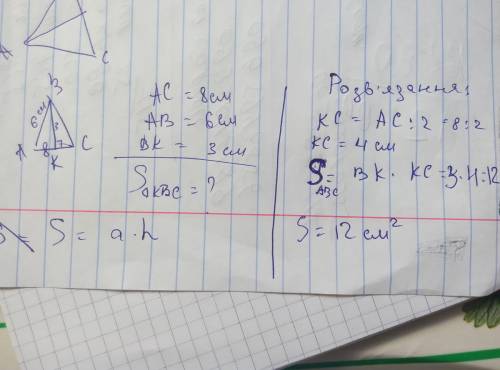 A
C
B
6см
3
A
8
K
C
AC = 8см
AB = 6см
BK = 3 см
S△KBC = ?
S = a·h
Розв'язання:
KC = AC : 2 = 8 : 2
KC = 4 см
S ABC = BK · KC = 3·4=12
S = 12 см²